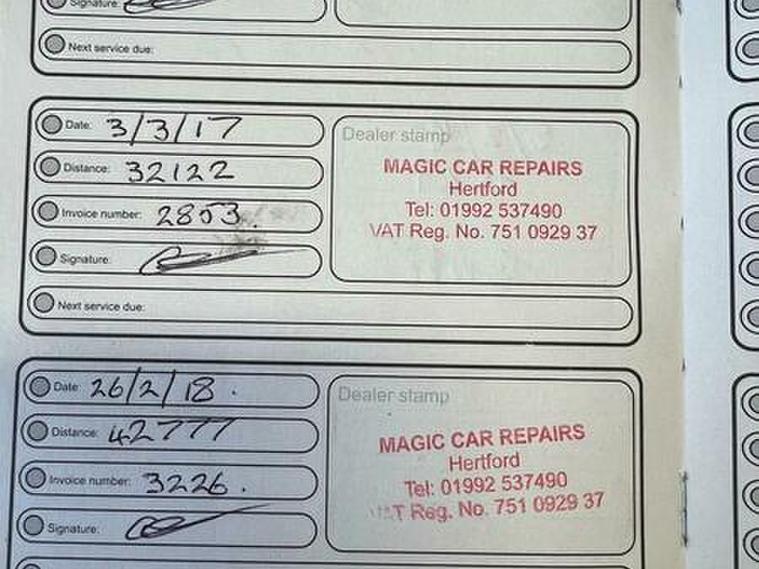 Signature:
Next service due:
Date: 3/3/17
Distance: 32122
Invoice number: 2853.
Signature:
Next service due:
Dealer stamp
MAGIC CAR REPAIRS
Hertford
Tel: 01992 537490
VAT Reg. No. 751 0929 37
Date: 26/2/18.
Distance: 42777
Invoice number: 3226.
Signature:
Dealer stamp
MAGIC CAR REPAIRS
Hertford
Tel: 01992 537490
T Reg. No. 751 0929 37